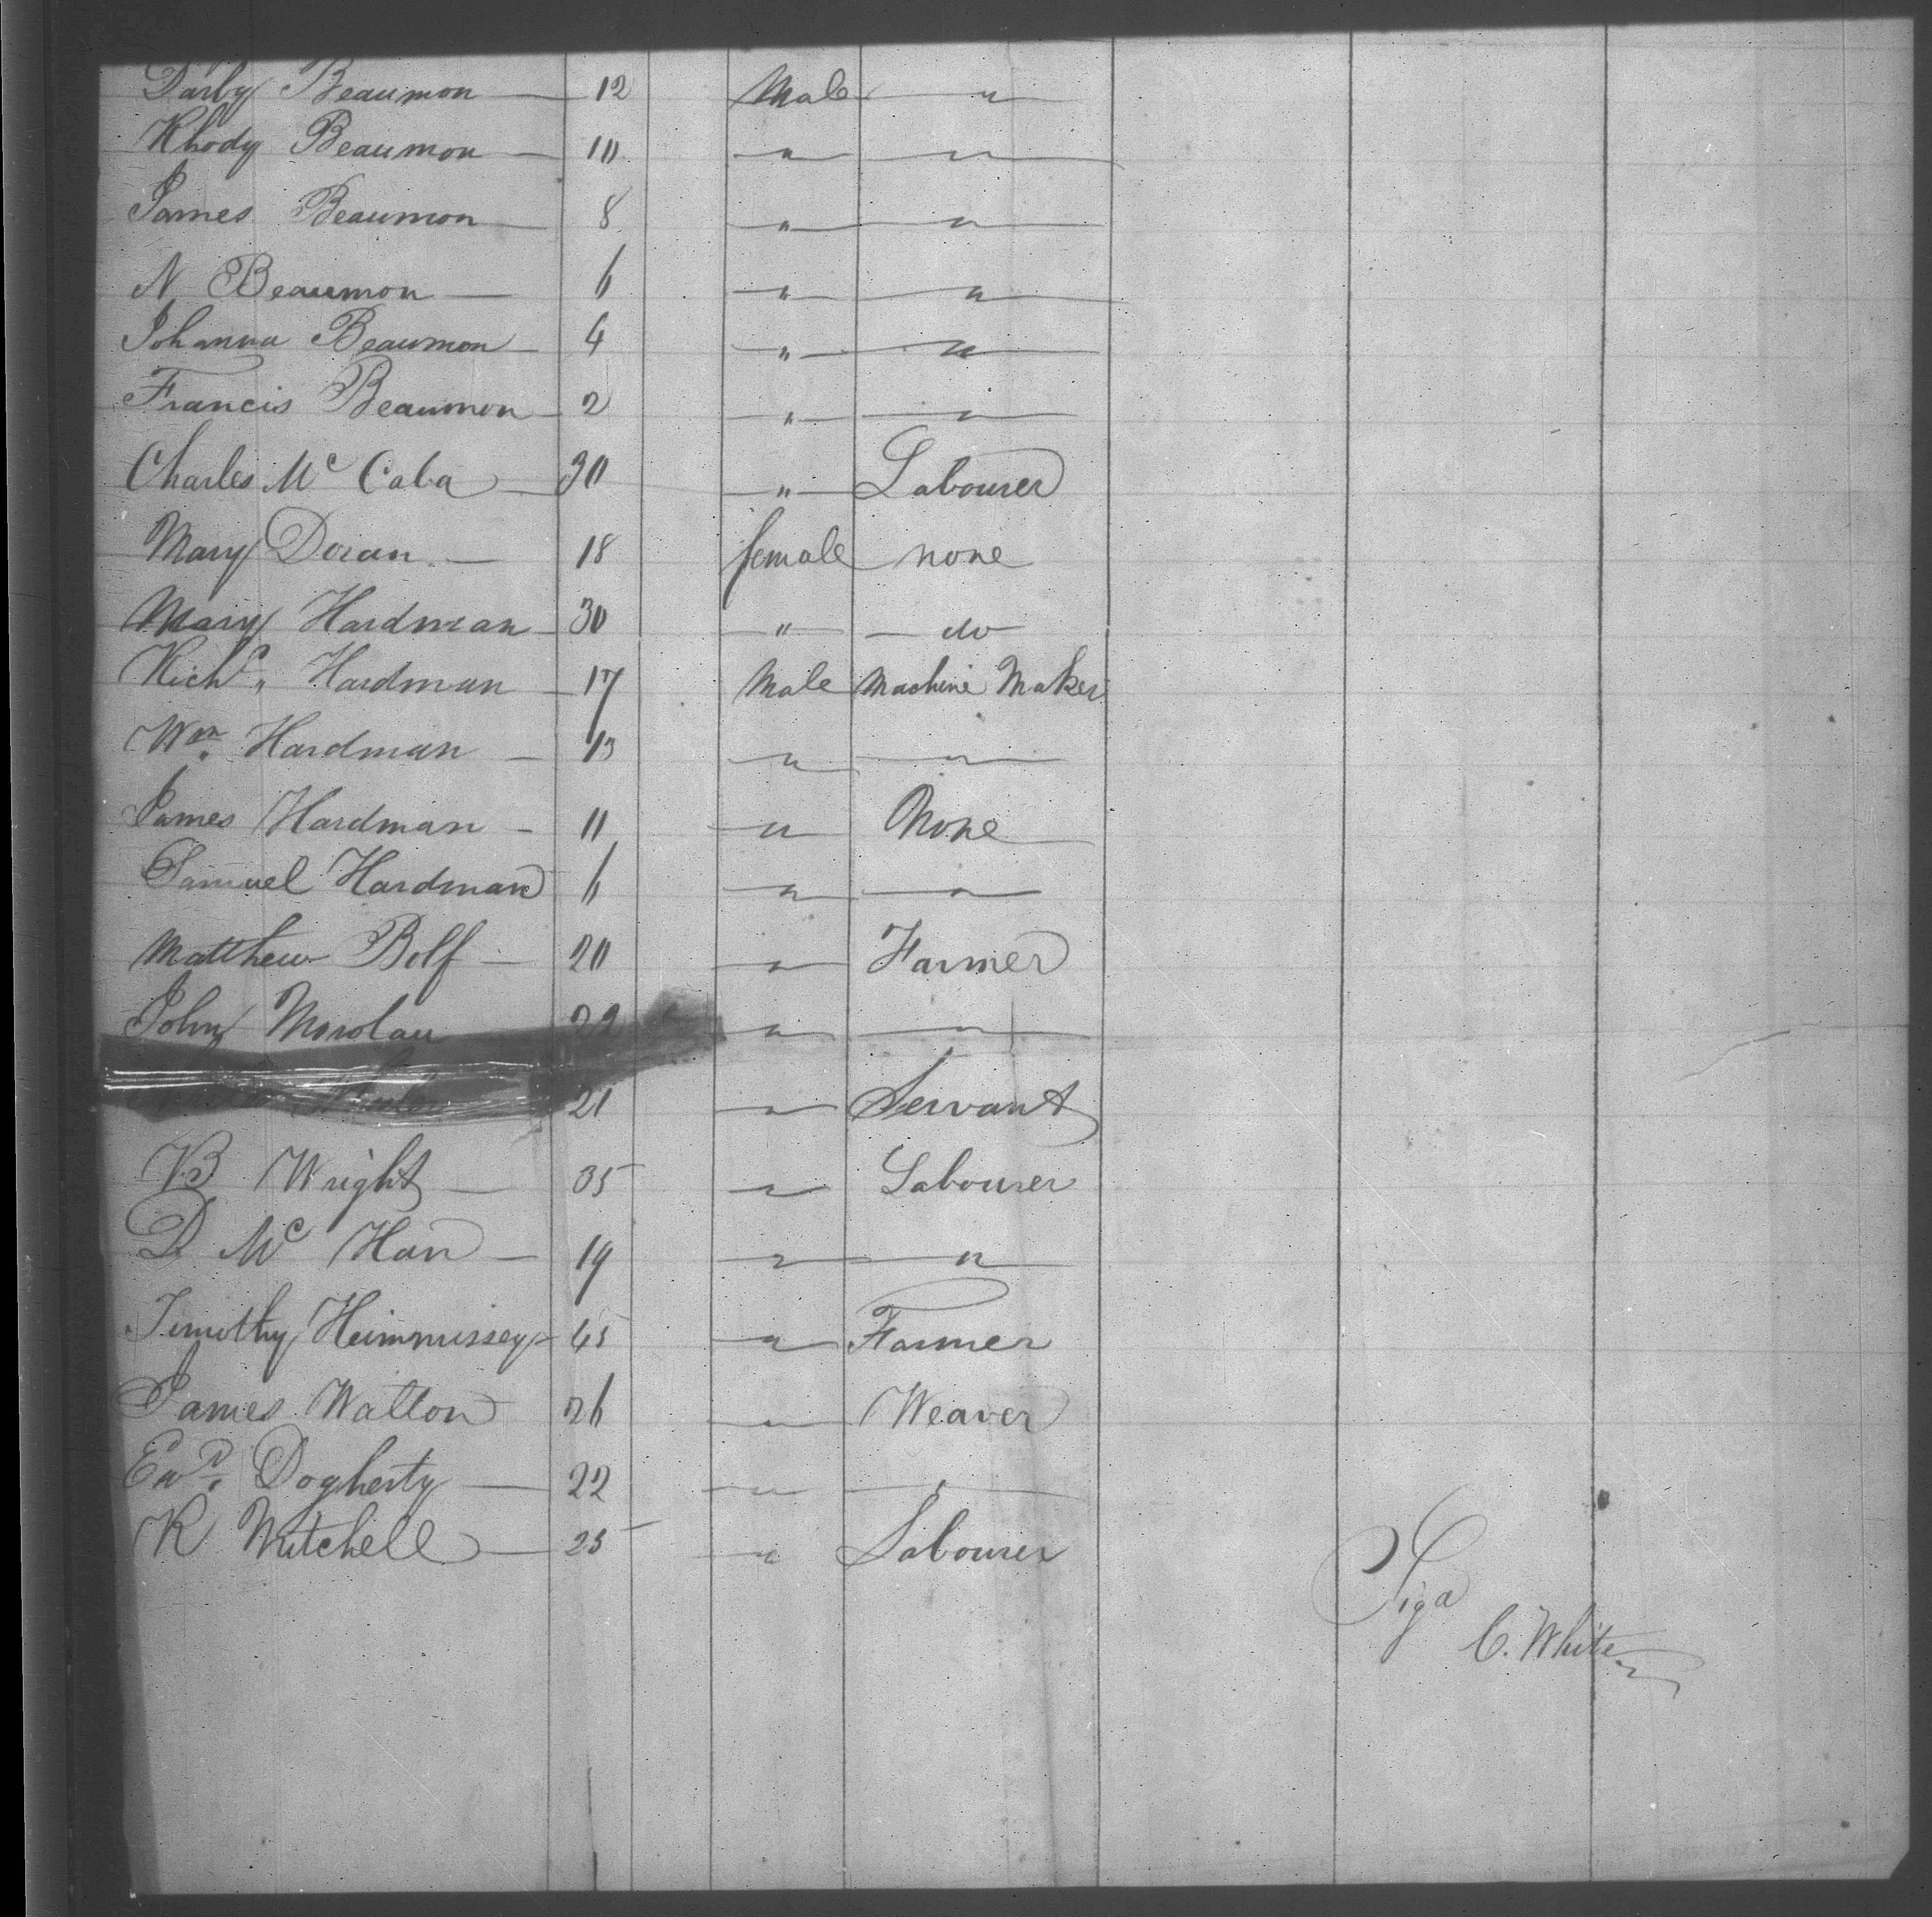 Darby Beaumon — 12 Male — " —
Rhody Beaumon — 10 — " — — " —
James Beaumon — 8 — " — — " —
N Beaumon — 6 — " — — " —
Johanna Beaumon — 4 — " — — " —
Francis Beaumon — 2 — " — — " —
Charles Mc Caba — 30 — " — Labourer
Mary Doran — 18 female none
Mary Hardman — 30 — " — — do
Richd. Hardman — 17 Male Machine Maker
Wm. Hardman — 13 — " — — " —
James Hardman — 11 — " — None
Samuel Hardman 6 — " — — " —
Matthew Bolf — 20 — " — Farmer
John 22 — " — — " —
21 — " — Servant
B Wright — 35 — " — Labourer
D Mc Han — 19 — " — — " —
Timothy 45 — " — Farmer
James Walton 26 — " — Weaver
Ewd. Dogherty — 22 — " — — " —
R Mitchell — 25 — " — Labourer
Sigd
C. White